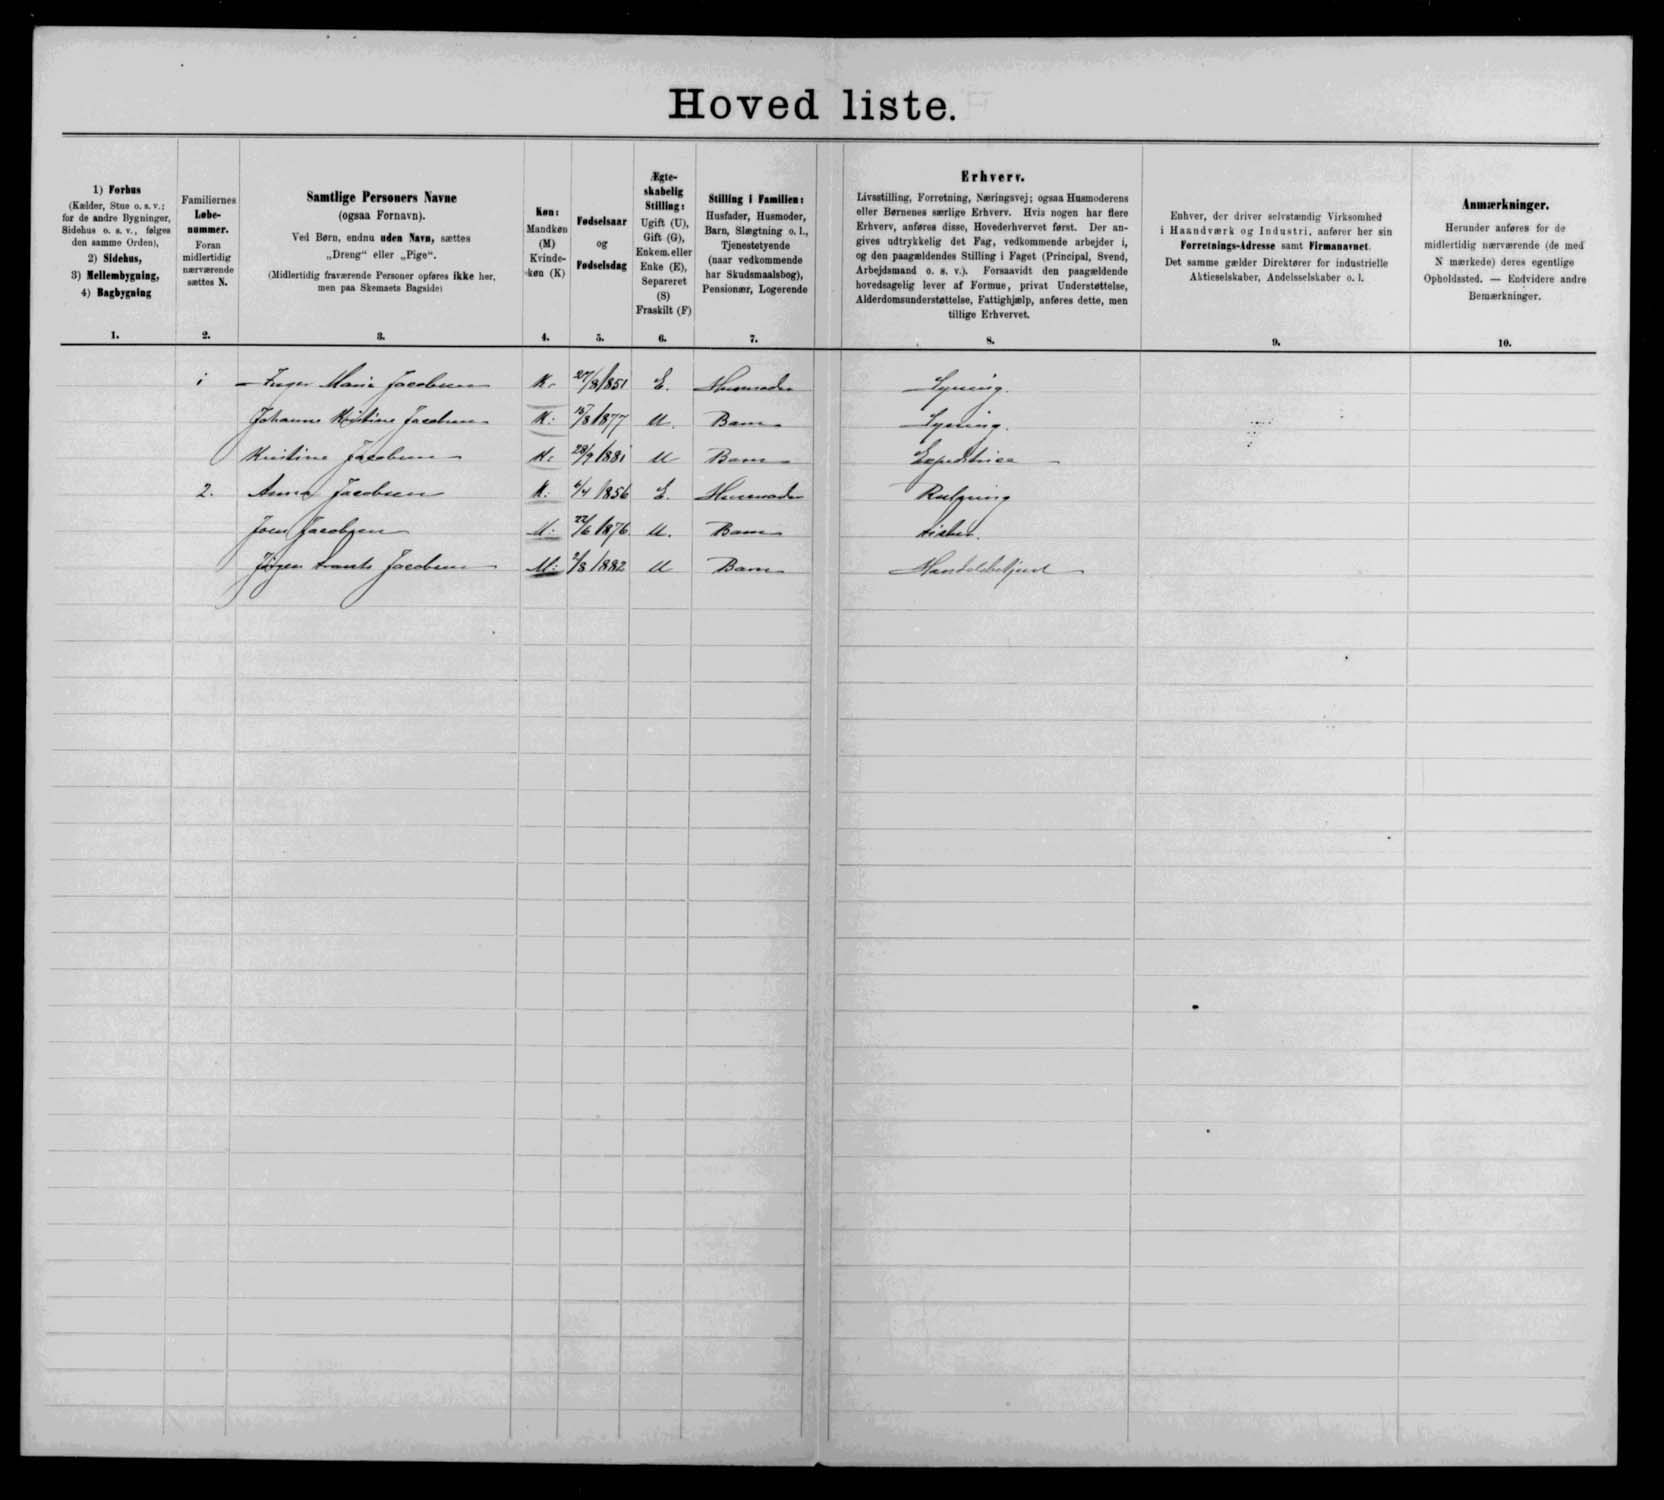 Hoved liste.
1) Forhus
(Kælder, Stue o. s. v.;
for de andre Bygninger,
Sidehus o. s. v., følges
den samme Orden),
2) Sidehus,
3) Mellembygning,
4) Bagbygning
1.
Familiernes
Løbe-
nummer.
Foran
midlertidig
nærværende
sættes N.
2.
Samtlige Personers Navne
(ogsaa Fornavn).
Ved Børn, endnu uden Navn, sættes
„Dreng“ eller „Pige“.
(Midlertidig fraværende Personer opføres ikke her,
men paa Skemaets Bagside)
3.
Køn:
Mandkøn
(M)
Kvinde-
køn (K)
4.
Fødselsaar
og
Fødselsdag
5.
Ægte-
skabelig
Stilling:
Ugift (U),
Gift (G),
Enkem. eller
Enke (E),
Separeret
(S)
Fraskilt (F)
6.
Stilling i Familien:
Husfader, Husmoder,
Barn, Slægtning o. l.,
Tjenestetyende
(naar vedkommende
har Skudsmaalsbog),
Pensionær, Logerende
7.
Erhverv.
Livsstilling, Forretning, Næringsvej; ogsaa Husmoderens
eller Børnenes særlige Erhverv. Hvis nogen har flere
Erhverv, anføres disse, Hovederhvervet først. Der an-
gives udtrykkelig det Fag, vedkommende arbejder i,
og den paagældendes Stilling i Faget (Principal, Svend,
Arbejdsmand o. s. v.). Forsaavidt den paagældende
hovedsagelig lever af Formue, privat Understøttelse,
Alderdomsunderstøttelse, Fattighjælp, anføres dette, men
tillige Erhvervet.
8.
Enhver, der driver selvstændig Virksomhed
i Haandværk og Industri, anfører her sin
Forretnings-Adresse samt Firmanavnet.
Det samme gælder Direktører for industrielle
Aktieselskaber, Andelsselskaber o. l.
9.
Anmærkninger.
Herunder anføres for de
midlertidig nærværende (de med
N mærkede) deres egentlige
Opholdssted. — Endvidere andre
Bemærkninger.
10.
1 Inger Marie Jacobsen K. 27/8 1851 E. Husmoder Syning.
Johanne Kristine Jacobsen K. 15/8 1877 U. Barn Syening.
Kristine Jacobsen K. 28/9 1881 U Barn Expeditrice
2. Anna Jacobsen K. 6/4 1856 E. Husmoder
Jacobsen M. 22/6 1876 U. Barn
Jørgen Jacobsen M. 2/8 1882 U Barn